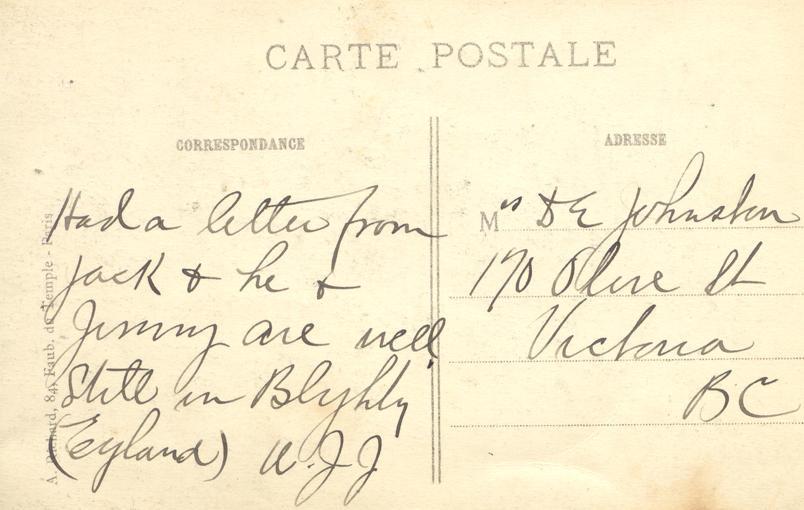 CARTE POSTALE
CORRESPONDANCE
ADRESSE
Had a letter from
Jack & he &
Jimmy are well
still in Blyhty
(Eyland) W.J.J.
Mrs D E Johnston
170 Olive St
Victoria
BC
84, Faub. du Temple - Paris